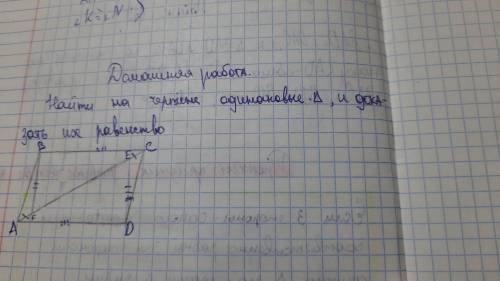 ∠K=∠N
Домашняя работа.
Найти на чертеже одинаковые Δ, и дока-
зать их равенство
B C
E
A F D